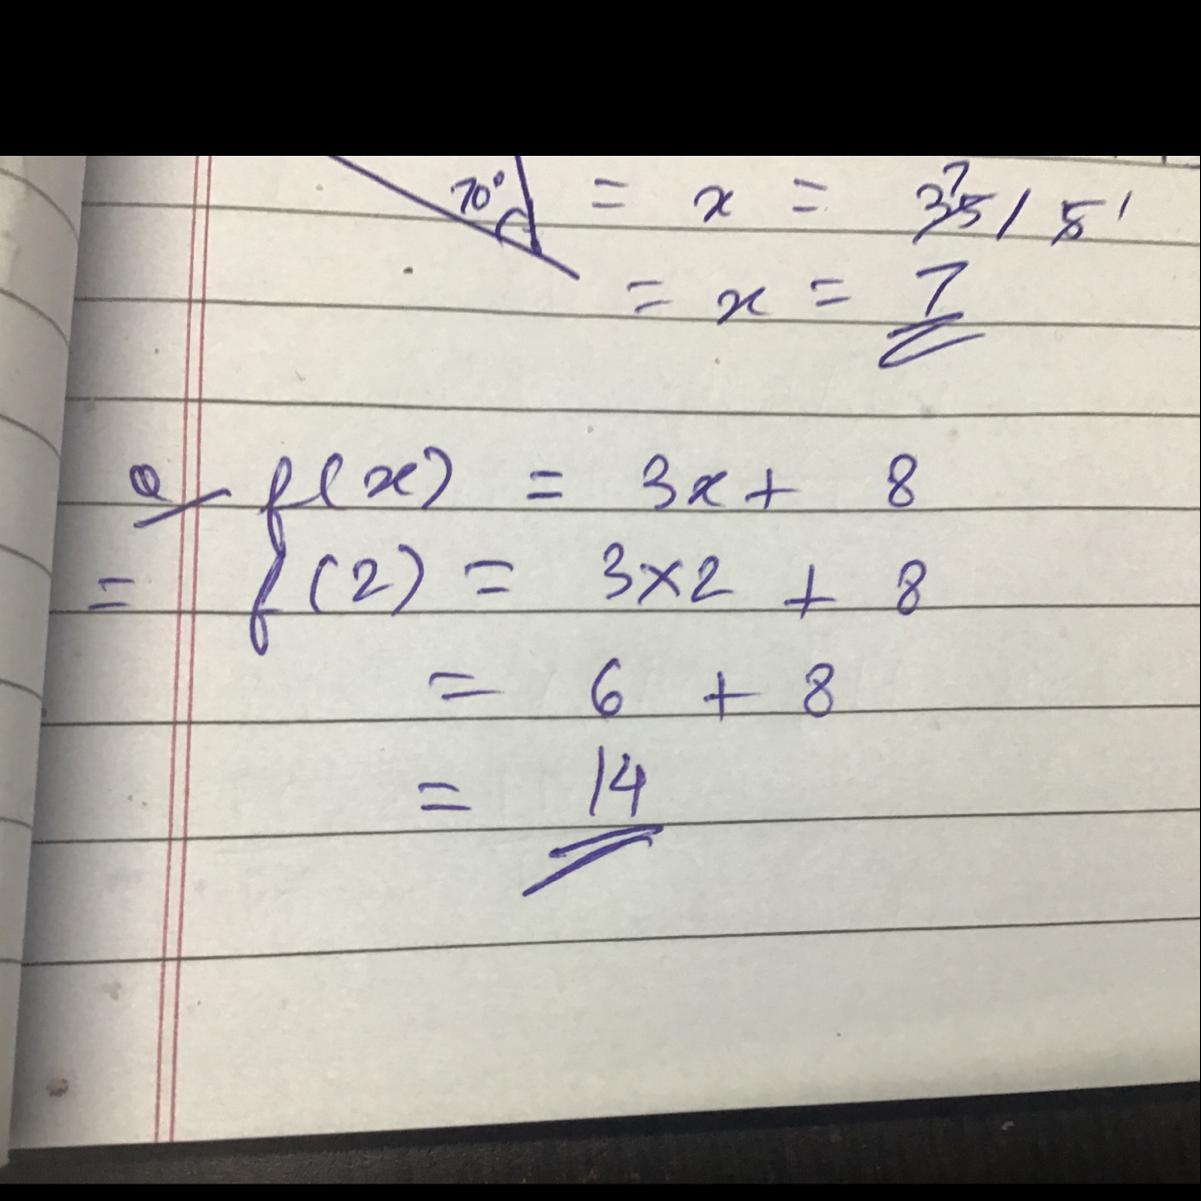 70° = x = 35/5
7 1
= x = 7
Q f(x) = 3x + 8
= f(2) = 3×2 + 8
= 6 + 8
= 14